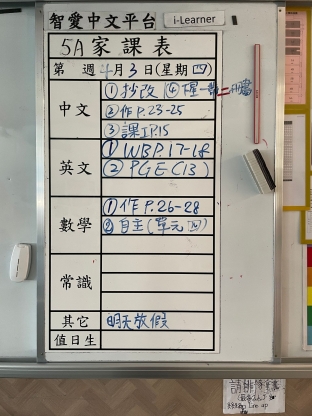 智愛中文平台
i-Learner
5A 家課表
第 週 4月3日(星期四)
中文
① 抄改
② 作P.23-25
③ 課工P.15
英文
① WB P.17-18
② PGE C13
數學
① 作 P.26-28
② 自主(單元四)
常識
其它
明天放假
值日生
請排
Line up